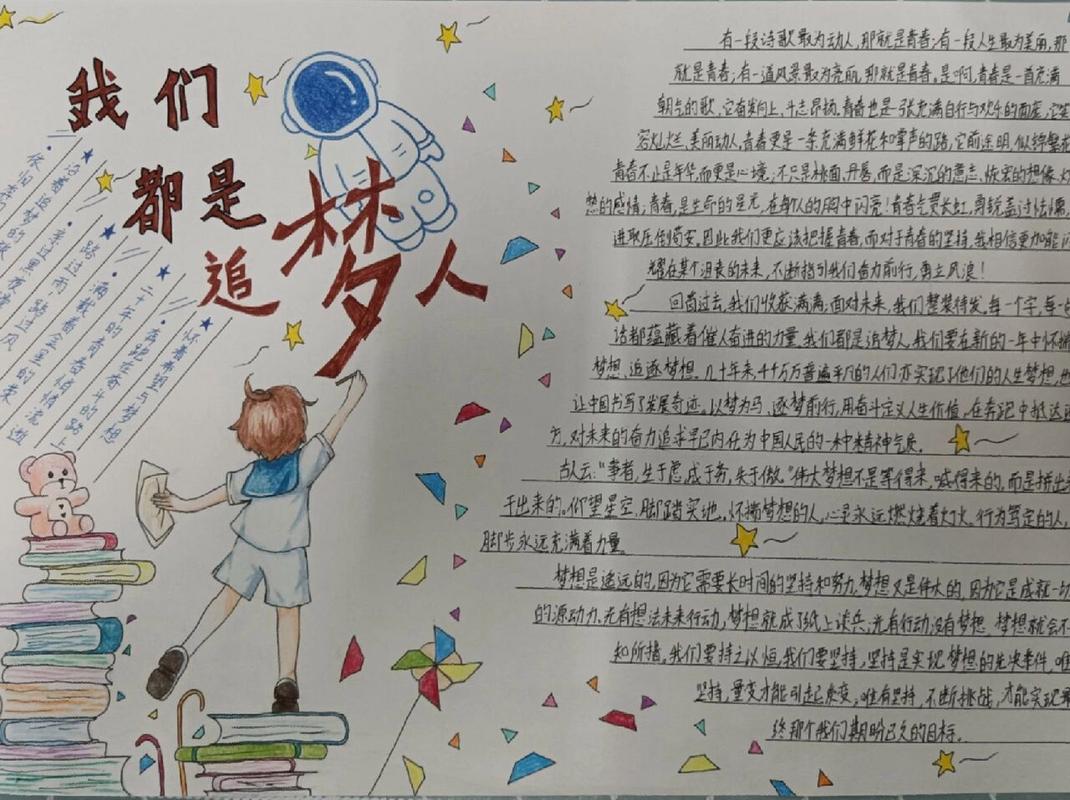 我们
都是
追梦人
怀着希望与梦想
奔跑在奋斗的路上
二十年的青春情流逝
满载着金星的荣
路过雨路过风
亲过黑夜
沿着追梦的
依归
有一段诗歌最为动人，那就是青春；有一段人生最为美丽，那
就是青春；有一道风景最为亮丽，那就是青春。是啊，青春是一首充满
朝气的歌，它奋发向上，斗志昂扬。青春也是一张充满自行与欢乐的面庞，它笑
容灿烂，美丽动人，青春更是一条充满鲜花和掌声的路，它前途明，似锦繁花
青春不止是年华，而更是心境；不只是桃面、丹唇，而是深沉的意志、恢宏的想像、
的感情；青春，是生命的星光，在每个人的胸中闪亮！青春气贯长虹，勇锐盖过怯懦，
进取压倒苟安。因此我们更应该把握青春，而对于青春的坚持，我相信更加能闪
耀在某个沮丧的未来，不断指引我们奋力前行，勇立风浪！
回首过去，我们收获满满；面对未来，我们整装待发，每一个字，每一
话都蕴藏着催人奋进的力量。我们都是追梦人，我们要在新的一年中怀揣
梦想、追逐梦想。几十年来，千千万万普遍平凡的人们亦实现了他们的人生梦想，也
让中国书写了发展奇迹。以梦为马、逐梦前行，用奋斗定义人生价值，在奔跑中抵达
方，对未来的奋力追求早已内化为中国人民的一种精神气质。
古人云：“事者，生于虑，成于务，失于傲。”伟大梦想不是等得来，喊得来的，而是拼出来
干出来的。仰望星空、脚踏实地。怀揣梦想的人，心灵永远燃烧着灯火。行为笃定的人，
脚步永远充满着力量。
梦想是遥远的，因为它需要长时间的坚持和努力，梦想又是伟大的，因为它是成就一切
的源动力。光有想法未来行动，梦想就成了纸上谈兵；光有行动没有梦想，梦想就会不
知所措。我们要持之以恒，我们要坚持，坚持是实现梦想的先决条件，唯
坚持，量变才能引起质变，唯有坚持，不断挑战，才能实现
终那个我们期盼已久的目标。